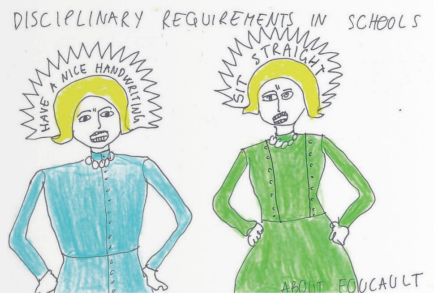 DISCIPLINARY REQUIREMENTS IN SCHOOLS
HAVE A NICE HANDWRITING
SIT STRAIGHT
ABOUT FOUCAULT